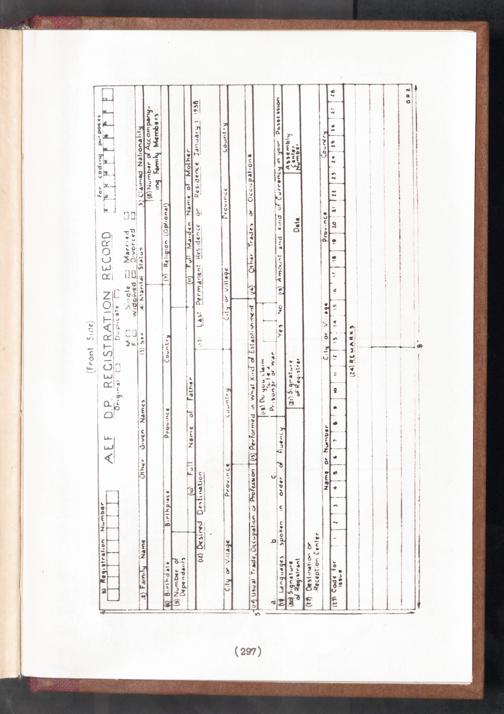 (Front Side)
AEF DP REGISTRATION RECORD
For coding purposes
Original ☐ Duplicate ☐
M ☐ Single ☐ Married ☐
F ☐ Widowed ☐ Divorced ☐
(1) Registration Number
(2) Family Name Other Given Names (3) Sex (4) Marital Status (5) Claimed Nationality
(6) Birthdate Birthplace Province Country (7) Religion (Optional) (8) Number of Accompanying Family Members
(9) Number of Dependents (10) Full Name of Father (11) Full Maiden Name of Mother
(12) Desired Destination (13) Last Permanent Residence or Residence January 1, 1938
City or Village Province Country City or Village Province Country
(14) Usual Trade, Occupation or Profession (15) Performed in What Kind of Establishment (16) Other Trades or Occupations
a b c
(17) Languages spoken in order of Fluency (18) Do you claim to be a Prisoner of War Yes No (19) Amount and Kind of Currency in your Possession
(20) Signature of Registrant (21) Signature of Registrar Date Assembly Center Number
(22) Destination or Reception Center
Name or Number City or Village Province Country
(23) Code for Issue 1 2 3 4 5 6 7 8 9 10 11 12 13 14 15 16 17 18 19 20 21 22 23 24 25 26 27 28
(24) REMARKS
DP 2
5"
8"
(297)